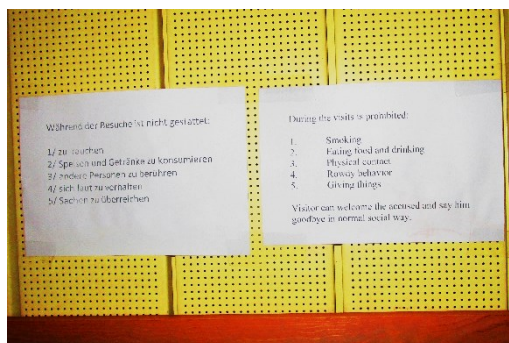 Während der Besuche ist nicht gestattet:
1/ zu rauchen
2/ Speisen und Getränke zu konsumieren
3/ andere Personen zu berühren
4/ sich laut zu verhalten
5/ Sachen zu überreichen
During the visits is prohibited:
1. Smoking
2. Eating food and drinking
3. Physical contact
4. Rowdy behavior
5. Giving things
Visitor can welcome the accused and say him
goodbye in normal social way.